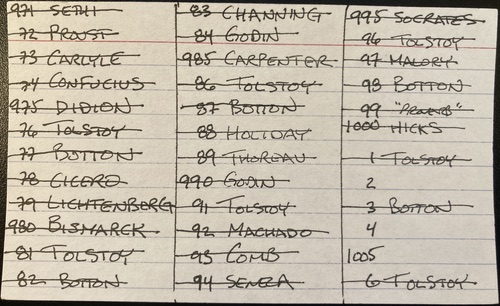 971 SETHI
72 PROUST
73 CARLYLE
74 CONFUCIUS
975 DIDION
76 TOLSTOY
77 BOTTON
78 CICERO
79 LICHTENBERG
980 BISMARCK
81 TOLSTOY
82 BOTTON
83 CHANNING
84 GODIN
985 CARPENTER
86 TOLSTOY
87 BOTTON
88 HOLIDAY
89 THOREAU
990 GODIN
91 TOLSTOY
92 MACHADO
93 COMB
94 SENECA
995 SOCRATES
96 TOLSTOY
97 MALORY
98 BOTTON
99
1000 HICKS
1 TOLSTOY
2
3 BOTTON
4
1005
6 TOLSTOY